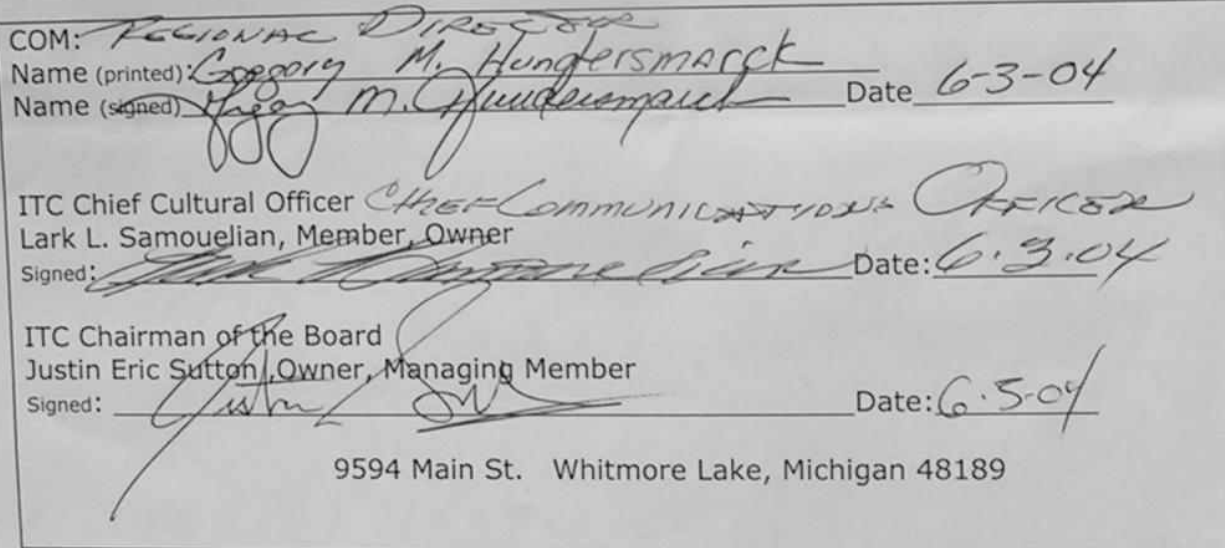 COM: REGIONAL DIRECTOR
Name (printed): Gregory M. Hundersmarck
Name (signed) Gregory M. Hundersmarck Date 6-3-04
ITC Chief Cultural Officer CHIEF COMMUNICATIONS OFFICER
Lark L. Samouelian, Member, Owner
Signed: Lark L Samouelian Date: 6.3.04
ITC Chairman of the Board
Justin Eric Sutton, Owner, Managing Member
Signed: Justin Date: 6.5-04
9594 Main St. Whitmore Lake, Michigan 48189